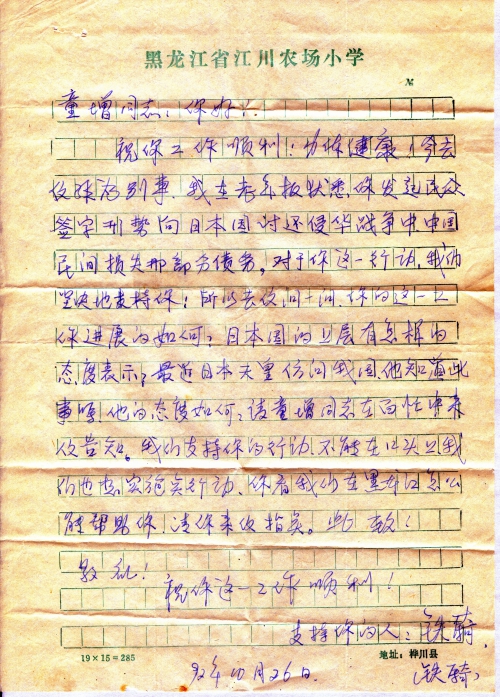 黑龙江省江川农场小学
№
童增同志：你好！
祝你工作顺利！身体健康！今去
信没有别事，我在老年报获悉你发起民众
签字形势向日本国讨还侵华战争中中国
民间损失那部分债务，对于你这一行动，我们
坚决地支持你！所以去信问一问，你的这一工
作进展的如何？日本国的上层有怎样的
态度表示？最近日本天皇访问我国他知道此
事吗？他的态度如何？请童增同志在百忙中来
信告知。我们支持你的行动，不能在口头上我
们也想实施实行动，你看我们在黑龙江怎么
能帮助你，请你来信指实。此致！
敬礼！
祝你这一工作顺利！
支持你的人：铁骑
19×15=285
地址：桦川县
92年10月26日
（铁骑）